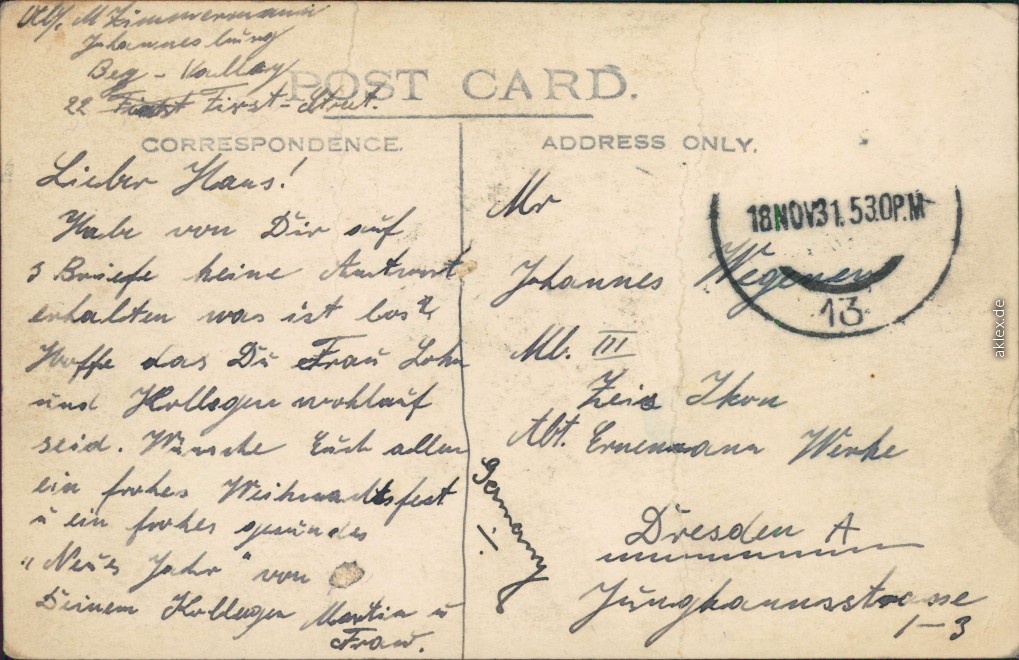 M Zimmermann
Johannesburg
Beg - Valley
22 First First-Street.
POST CARD.
CORRESPONDENCE.
ADDRESS ONLY.
Lieber Hans!
Habe von Dir auf
3 Briefe keine Antwort
erhalten was ist los?
Hoffe das Du Frau Sohn
und Kollegen wohlauf
seid. Wünsche Euch allen
ein frohes Weihnachtsfest
u ein frohes gesundes
"Neues Jahr" von
Deinem Kollegen Martin u
Frau.
18NOV31.530P.M
13
Mr
Johannes Wegener
Mb. III
Zeis Ikon
Abt. Ernemann Werke
Dresden A
Junghannsstrasse
1-3
Germany
aklex.de